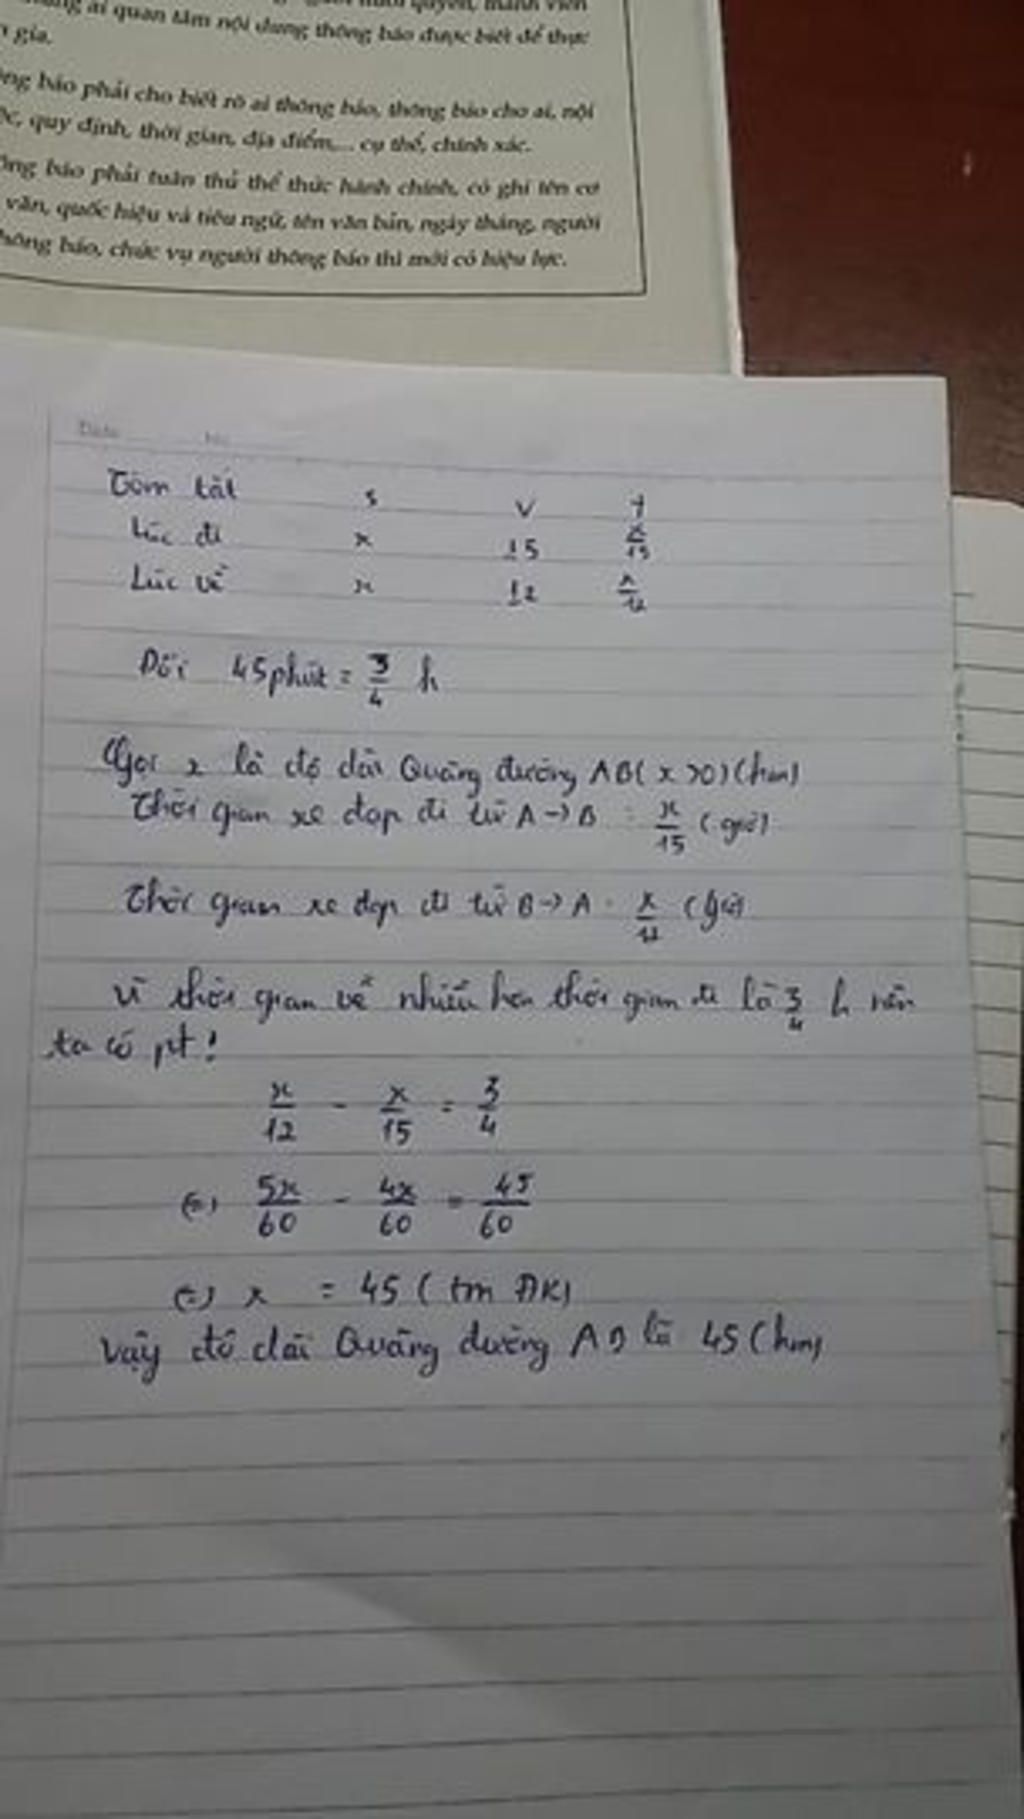 ai quan tâm nội dung thông báo được biết để thực
gia.
báo phải cho biết rõ ai thông báo, thông báo cho ai, nội
quy định, thời gian, địa điểm,... cụ thể, chính xác.
báo phải tuân thủ thể thức hành chính, có ghi tên cơ
văn, quốc hiệu và tiêu ngữ, tên văn bản, ngày tháng, người
thông báo, chức vụ người thông báo thì mới có hiệu lực.
Date No
Tóm tắt s v t
Lúc đi x 15 x/15
Lúc về x 12 x/12
Đổi 45phút = 3/4 h
Gọi x là độ dài Quãng đường AB (x >0) (km)
Thời gian xe đạp đi từ A → B : x/15 (giờ)
Thời gian xe đạp đi từ B → A : x/12 (giờ)
Vì thời gian về nhiều hơn thời gian đi là 3/4 h nên
ta có pt:
x/12 - x/15 = 3/4
(=) 5x/60 - 4x/60 = 45/60
(=) x = 45 (tm ĐK)
Vậy độ dài Quãng đường AB là 45 (km)